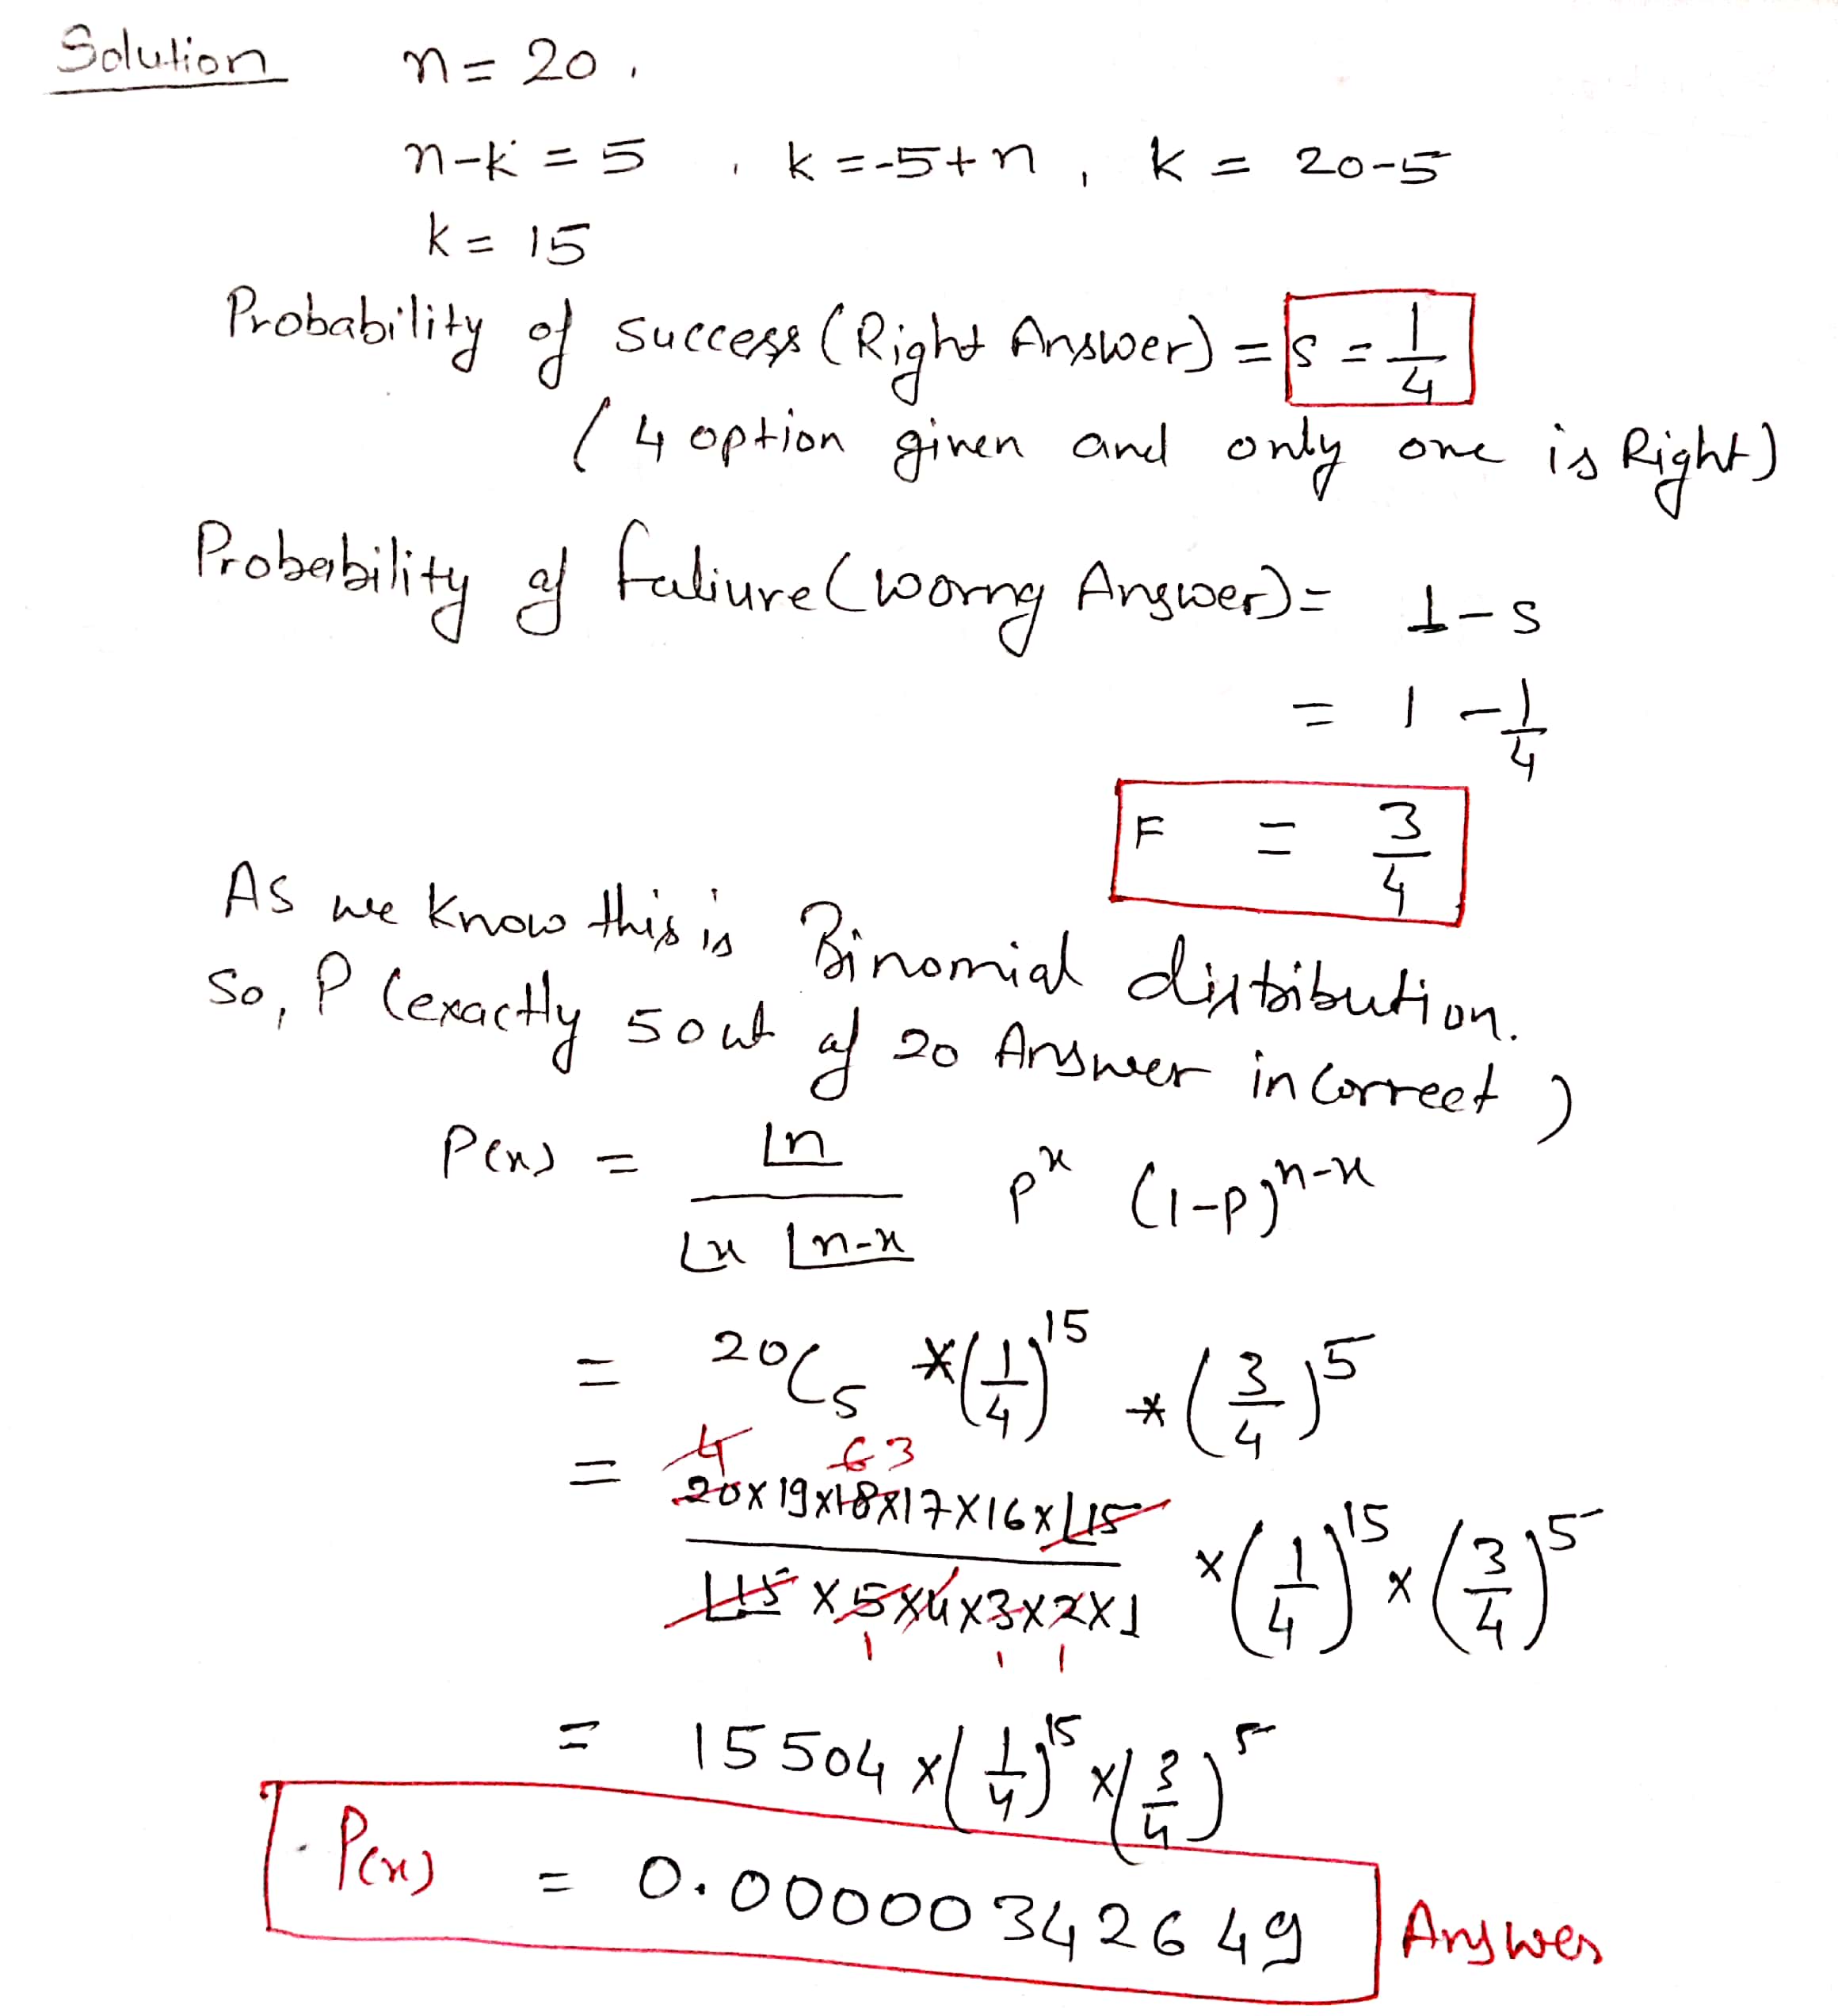 Solution n = 20 ,
n-k = 5 , k = -5+n , k = 20-5
k = 15
Probability of success (Right Answer) = s = 1/4
( 4 option given and only one is Right)
Probability of faliure (worng Answer) = 1-s
= 1 - 1/4
F = 3/4
As we know this is Binomial distribution.
So, P (exactly 5 out of 20 Answer incorrect )
P(x) = ⌊n / ⌊x ⌊n-x p^x (1-p)^n-x
= 20C5 * (1/4)^15 * (3/4)^5
4 6 3
= 20x19x18x17x16x⌊15 / ⌊15 x5x4x3x2x1 x (1/4)^15 x (3/4)^5
1 1 1
= 15504 x (1/4)^15 x (3/4)^5
P(x) = 0.00000342649 Answer